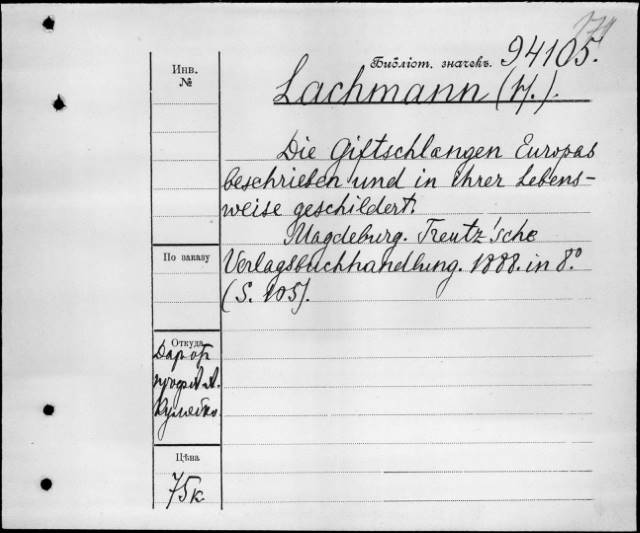 174
Библіот. значекъ. 94105.
Инв.
№
Lachmann (H.).
Die Giftschlangen Europas
beschrieben und in ihrer Lebens-
weise geschildert.
Magdeburg. Creutz'sche
По заказу
Verlagsbuchhandlung. 1888. in 8.°
(S. 105).
Откуда
Дар от
проф. А. А.
Кулябко
Цѣна
75 к.